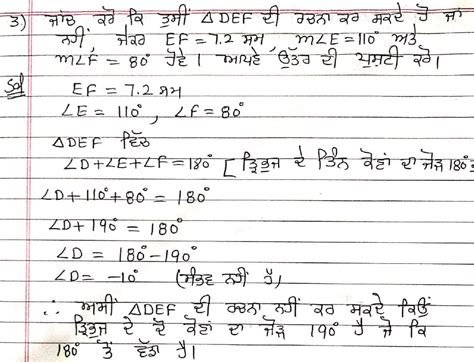 3) ਜਾਂਚ ਕਰੋ ਕਿ ਤੁਸੀਂ △DEF ਦੀ ਰਚਨਾ ਕਰ ਸਕਦੇ ਹੋ ਜਾਂ
ਨਹੀਂ, ਜੇਕਰ EF = 7.2 ਸਮ, m∠E = 110° ਅਤੇ
m∠F = 80° ਹੋਵੇ। ਆਪਣੇ ਉੱਤਰ ਦੀ ਪੁਸ਼ਟੀ ਕਰੋ।
Sol EF = 7.2 ਸਮ
∠E = 110°, ∠F = 80°
△DEF ਵਿੱਚ
∠D+∠E+∠F = 180° [ਤ੍ਰਿਭੁਜ ਦੇ ਤਿੰਨ ਕੋਣਾਂ ਦਾ ਜੋੜ 180°
∠D + 110° + 80° = 180°
∠D + 190° = 180°
∠D = 180° - 190°
∠D = -10° (ਸੰਭਵ ਨਹੀਂ ਹੈ)
∴ ਅਸੀਂ △DEF ਦੀ ਰਚਨਾ ਨਹੀਂ ਕਰ ਸਕਦੇ ਕਿਉਂ
ਤ੍ਰਿਭੁਜ ਦੇ ਦੋ ਕੋਣਾਂ ਦਾ ਜੋੜ 190° ਹੈ ਜੋ ਕਿ
180° ਤੋਂ ਵੱਡਾ ਹੈ।